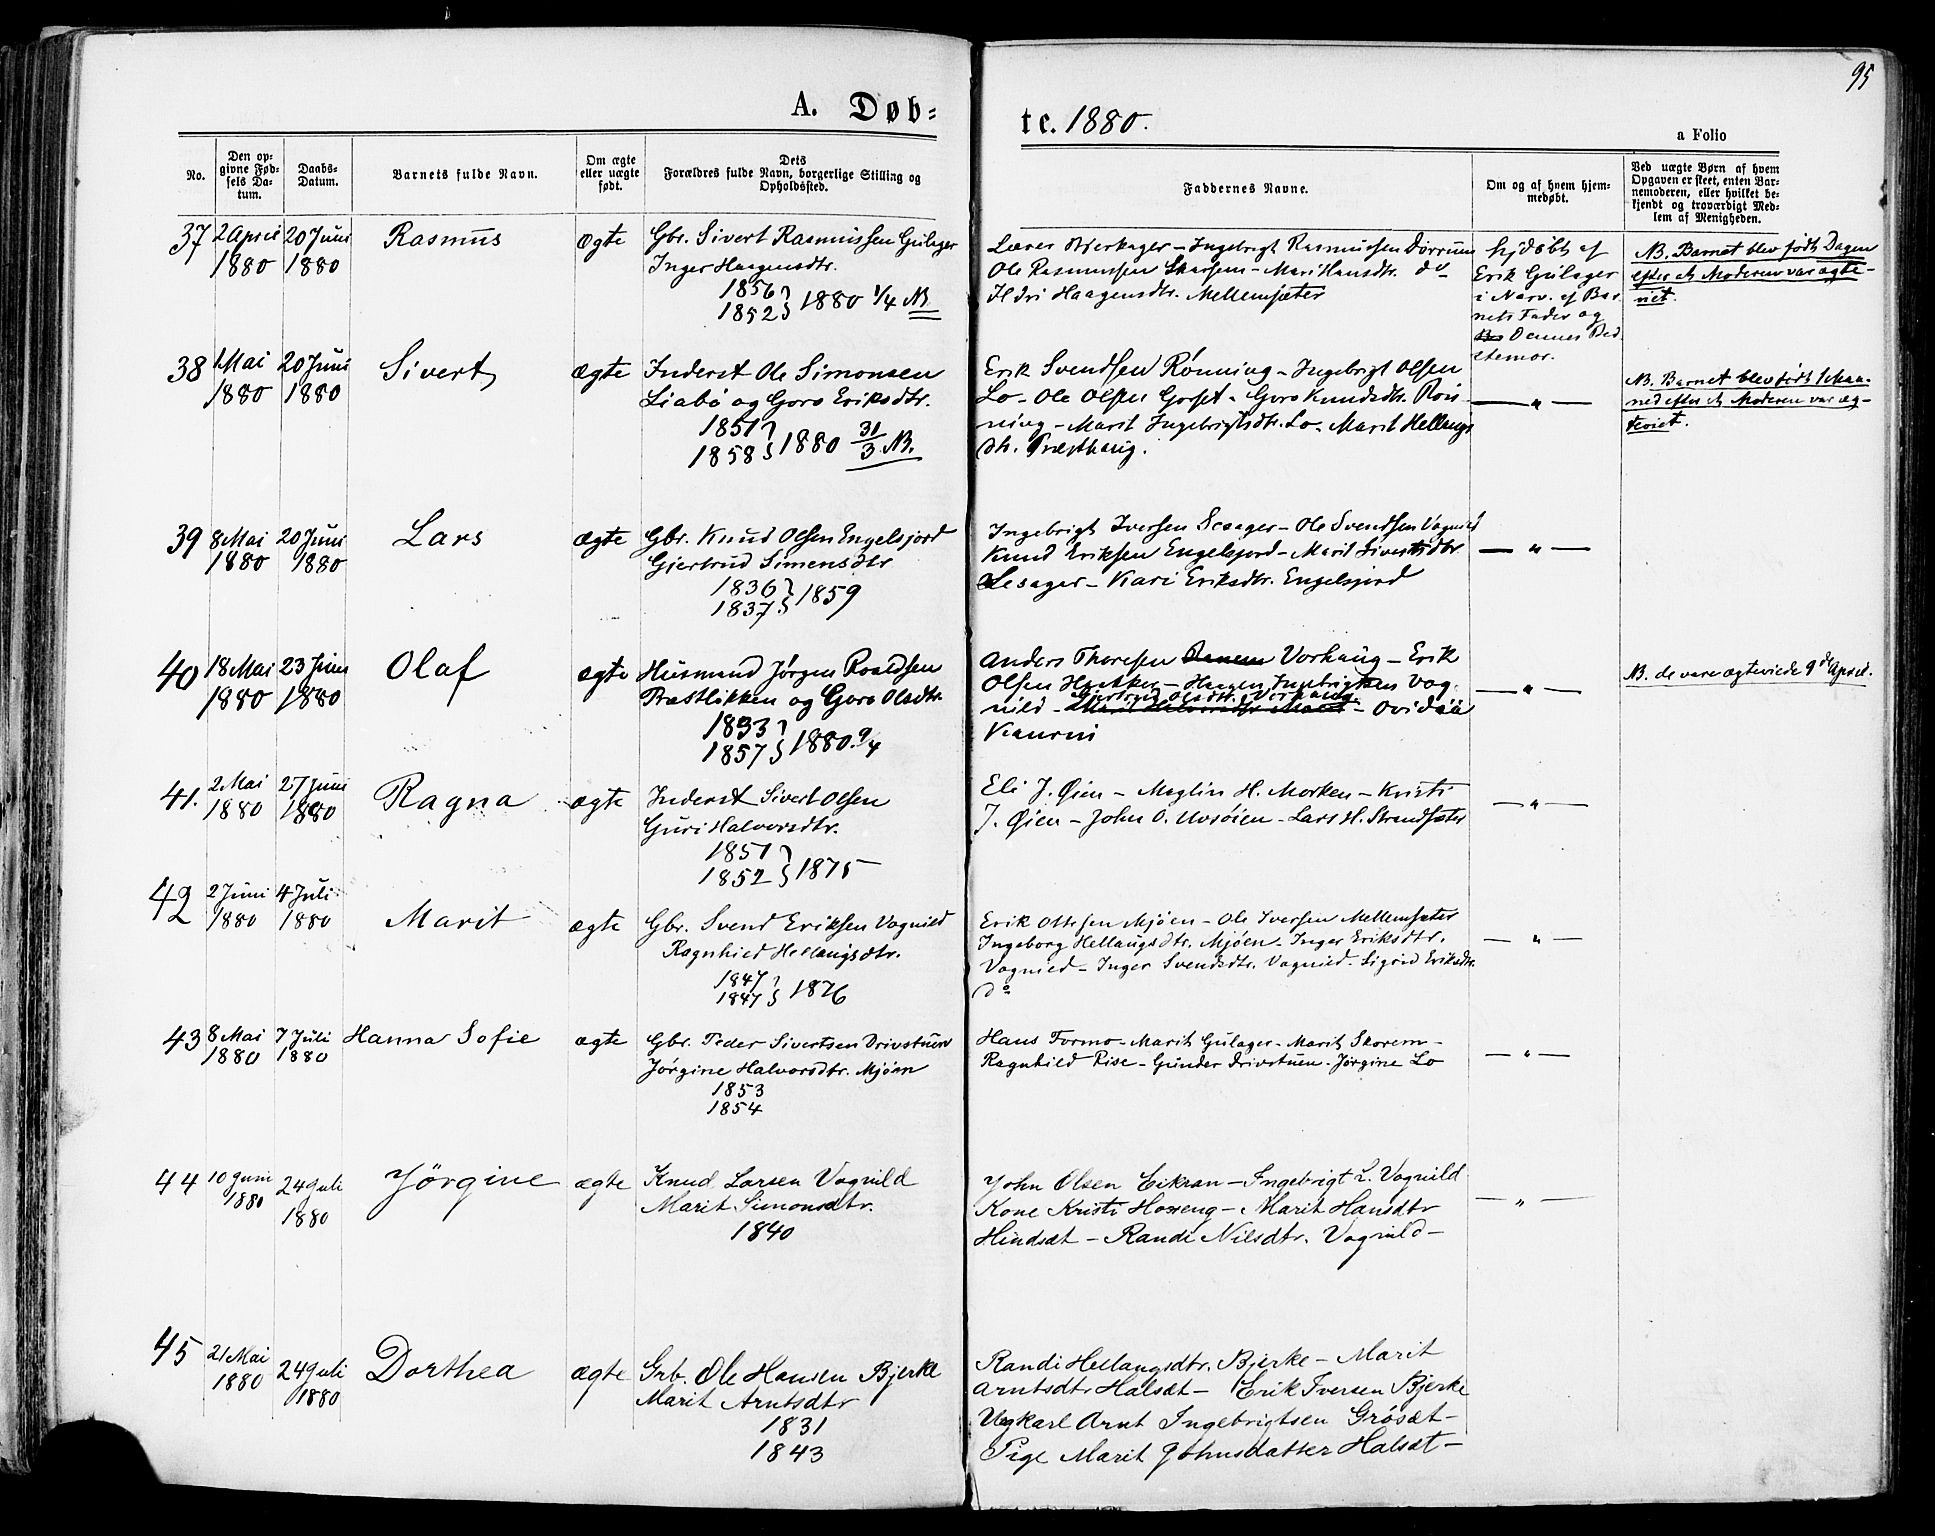 95
A. Døb=
te. 1880.
a Folio
No.
Den op-
givne Fød-
sels Da-
tum.
Daabs-
Datum.
Barnets fulde Navn.
Om ægte
eller uægte
født.
Dets
Forældres fulde Navn, borgerlige Stilling og
Opholdssted.
Faddernes Navne.
Om og af hvem hjem-
medøbt.
Ved uægte Børn af hvem
Opgaven er skeet, enten Bar-
nemoderen, eller hvilket be-
kjendt og troværdigt Med-
lem af Menigheden.
37
2 April
1880
20 Juni
1880
Rasmus
ægte
Gbr. Sivert Rasmussen Gulager
Inger Haagensdtr.
1856
1852
1880 1/4 NB
Ingebrigt Rasmussen Dørrum
Ole Rasmussen Skarsem - Mari Hansdtr. do
Haagensdtr. Mellemsæter
hjdøbt af
Erik Gulager
i Nærv. af Bar
nets Fader og
Dennes Sted
NB. Barnet blev født Dagen
efter at Moderen var ægte-
viet.
38
1 Mai
1880
20 Juni
1880
Sivert
ægte
Inderst Ole Simonsen
Liabø og Goro Eriksdtr.
1851
1858
1880 31/3 NB.
Erik Svendsen Rønning - Ingebrigt Olsen
Lo - Ole Olsen Gorset - Goro Knudsdtr. Røn-
ning - Marit Ingebrigtsdtr. Lo - Marit Hellaugs
dtr. Præsthaug.
— " —
NB. Barnet blev født 1 Maa-
ned efter at Moderen var æg-
teviet.
39
8 Mai
1880
20 Juni
1880
Lars
ægte
Gbr. Knud Olsen Engelsjord
Gjertrud Simensdtr
1836
1837
1859
Ingebrigt Iversen Sesager - Ole Svendsen Vognild
Knud Eriksen Engelsjord - Marit Sivertsdtr
Sesager - Kari Eriksdtr. Engelsjord
— " —
40
18 Mai
1880
23 Juni
1880
Olaf
ægte
Husmand Jørgen Roaldsen
Præstlikken og Goro Olsdtr.
1833
1857
1880. 9/4
Anders Thoresen Vorhaug - Erik
Olsen Hæaker - Haagen Ingebrigtsen Vog-
Gjertrud Olsdtr. Vorhaug
nild -
— " —
NB. de vare ægteviede 9d April.
41.
2 Mai
1880
27 Juni
1880
Ragna
ægte
Inderst Sivert Olsen
Guri Halvorsdtr.
1851
1852
1875
Eli J. Øien - Magli H. Morken - Kristi
J. Øien - John O. Uvsøien - Lars H. Strandsæter
— " —
42
2 Juni
1880
4 Juli
1880
Marit
ægte
Gbr. Svend Eriksen Vognild
Ragnhild Hellaugsdtr.
1847
1847
1876
Erik Ottesen Mjøen - Ole Iversen Mellemsæter
Ingeborg Hellaugsdtr. Mjøen - Inger Eriksdtr.
Vognild - Inger Svendsdtr. Vognild - Sigrid Eriksdtr.
do
— " —
43
8 Mai
1880
7 Juli
1880
Hanna Sofie
ægte
Gbr. Peder Sivertsen Drivstuen
Jørgine Halvorsdtr. Mjøen
1853
1854
Hans Formo - Marit Gulager - Marit Skorem -
Ragnhild Rise - Gunder Drivstuen - Jørgine Lo
— " —
44
10 Juni
1880
24 Juli
1880
Jörgine
ægte
Knud Larsen Vognild
Marit Simonsdtr.
1840
John Olsen Eikran - Ingebrigt L. Vognild
Kone Kristi Hoseng - Marit Hansdtr
Hindsæt - Randi Nilsdtr. Vognild -
— " —
45
21 Mai
1880
24 Juli
1880
Dorthea
ægte
Grb. Ole Hansen Bjerke
Marit Arntsdtr
1831
1843
Randi Hellaugsdtr. Bjerke - Marit
Arntsdtr Halsæt - Erik Iversen Bjerke
Ungkarl Arnt Ingebrigtsen Grösæt -
Pige Marit Johnsdatter Halsæt -